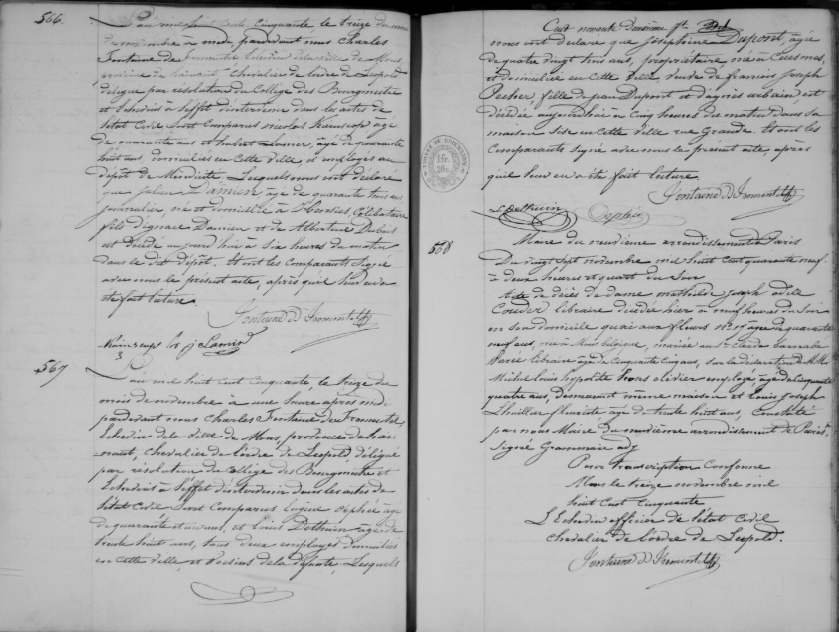 566.
L'an mil huit cent cinquante le treize du mois
de novembre à midi, pardevant nous Charles
Fontaine de Fromentel, Echevin de la ville de Mons,
province de hainaut, Chevalier de l'ordre de Léopold
délégué par résolution du Collège des Bourgmestre
et Echevins à l'effet d'intervenir dans les actes de
l'état Civil sont Comparus nicolas âgé
de quarante ans et hubert Lamer, âgé de quarante
huit ans, domiciliés en cette ville, et employés au
dépôt de Mendicité. Lesquels nous ont déclaré
que Damien âgé de quarante trois ans
journalier, né et domicilié à Hensies, Célibataire
fils d'ignace Damien et de Albertine Dubois
est décédé aujourd'hui à six heures du matin
dans le dit dépôt. Et ont les comparants signé
avec nous le présent acte, après qu'il leur en a
été fait lecture.
Fontaine d Fromentel
567
L'an mil huit cent cinquante, le treize du
mois de novembre à une heure après midi
pardevant nous Charles Fontaine de Fromentel,
Echevin de la ville de Mons, province de hai-
naut, Chevalier de l'ordre de Léopold délégué
par résolution du Collège des Bourgmestre et
Echevins à l'effet d'intervenir dans les actes de
l'état Civil sont Comparus âgé
de quarante et un ans, et Louis Dethuin âgé de
trente huit ans, tous deux employés domiciliés
en cette ville, et voisins de la défunte, Lesquels
Cent nonante deuxième ft
nous ont déclaré que Joséphine Dupont, âgée
de quatre vingt trois ans, propriétaire, née à Cuesmes,
et domiciliée en cette ville veuve de francois Joseph
Pecher fille de feu Dupont et d'agnès urbain, est
décédée aujourd'hui à cinq heures du matin dans sa
maison sise en cette ville rue Grande. Et ont les
comparants signé avec nous le présent acte, après
qu'il leur en a été fait lecture.
Fontaine d Fromentel
L. Dethuin
568
Mairie du neuvième arrondissement de Paris
Du vingt sept novembre mil huit cent quarante neuf
à deux heures et quart du soir
Acte de décès de dame mathilde joseph adèle
libraire décédée hier à neuf heures du soir
en son domicile quai aux fleurs âgée de quarante
neuf ans, née à Mons belgique, mariée au Sr
libraire âgé de cinquante cinq ans, sur la déclaration de MM.
Michel Louis hyppolite employé, âgé de cinquante
quatre ans, demeurant même maison et Louis Joseph
Lhuillier fleuriste âgé de trente huit ans, Constaté
par nous Maire du neuvième arrondissement de Paris.
Signé adj
Pour transcription Conforme
Mons le treize novembre mil
huit cent cinquante
L'Echevin officier de l'état civil
Chevalier de l'ordre de Léopold.
Fontaine d Fromentel